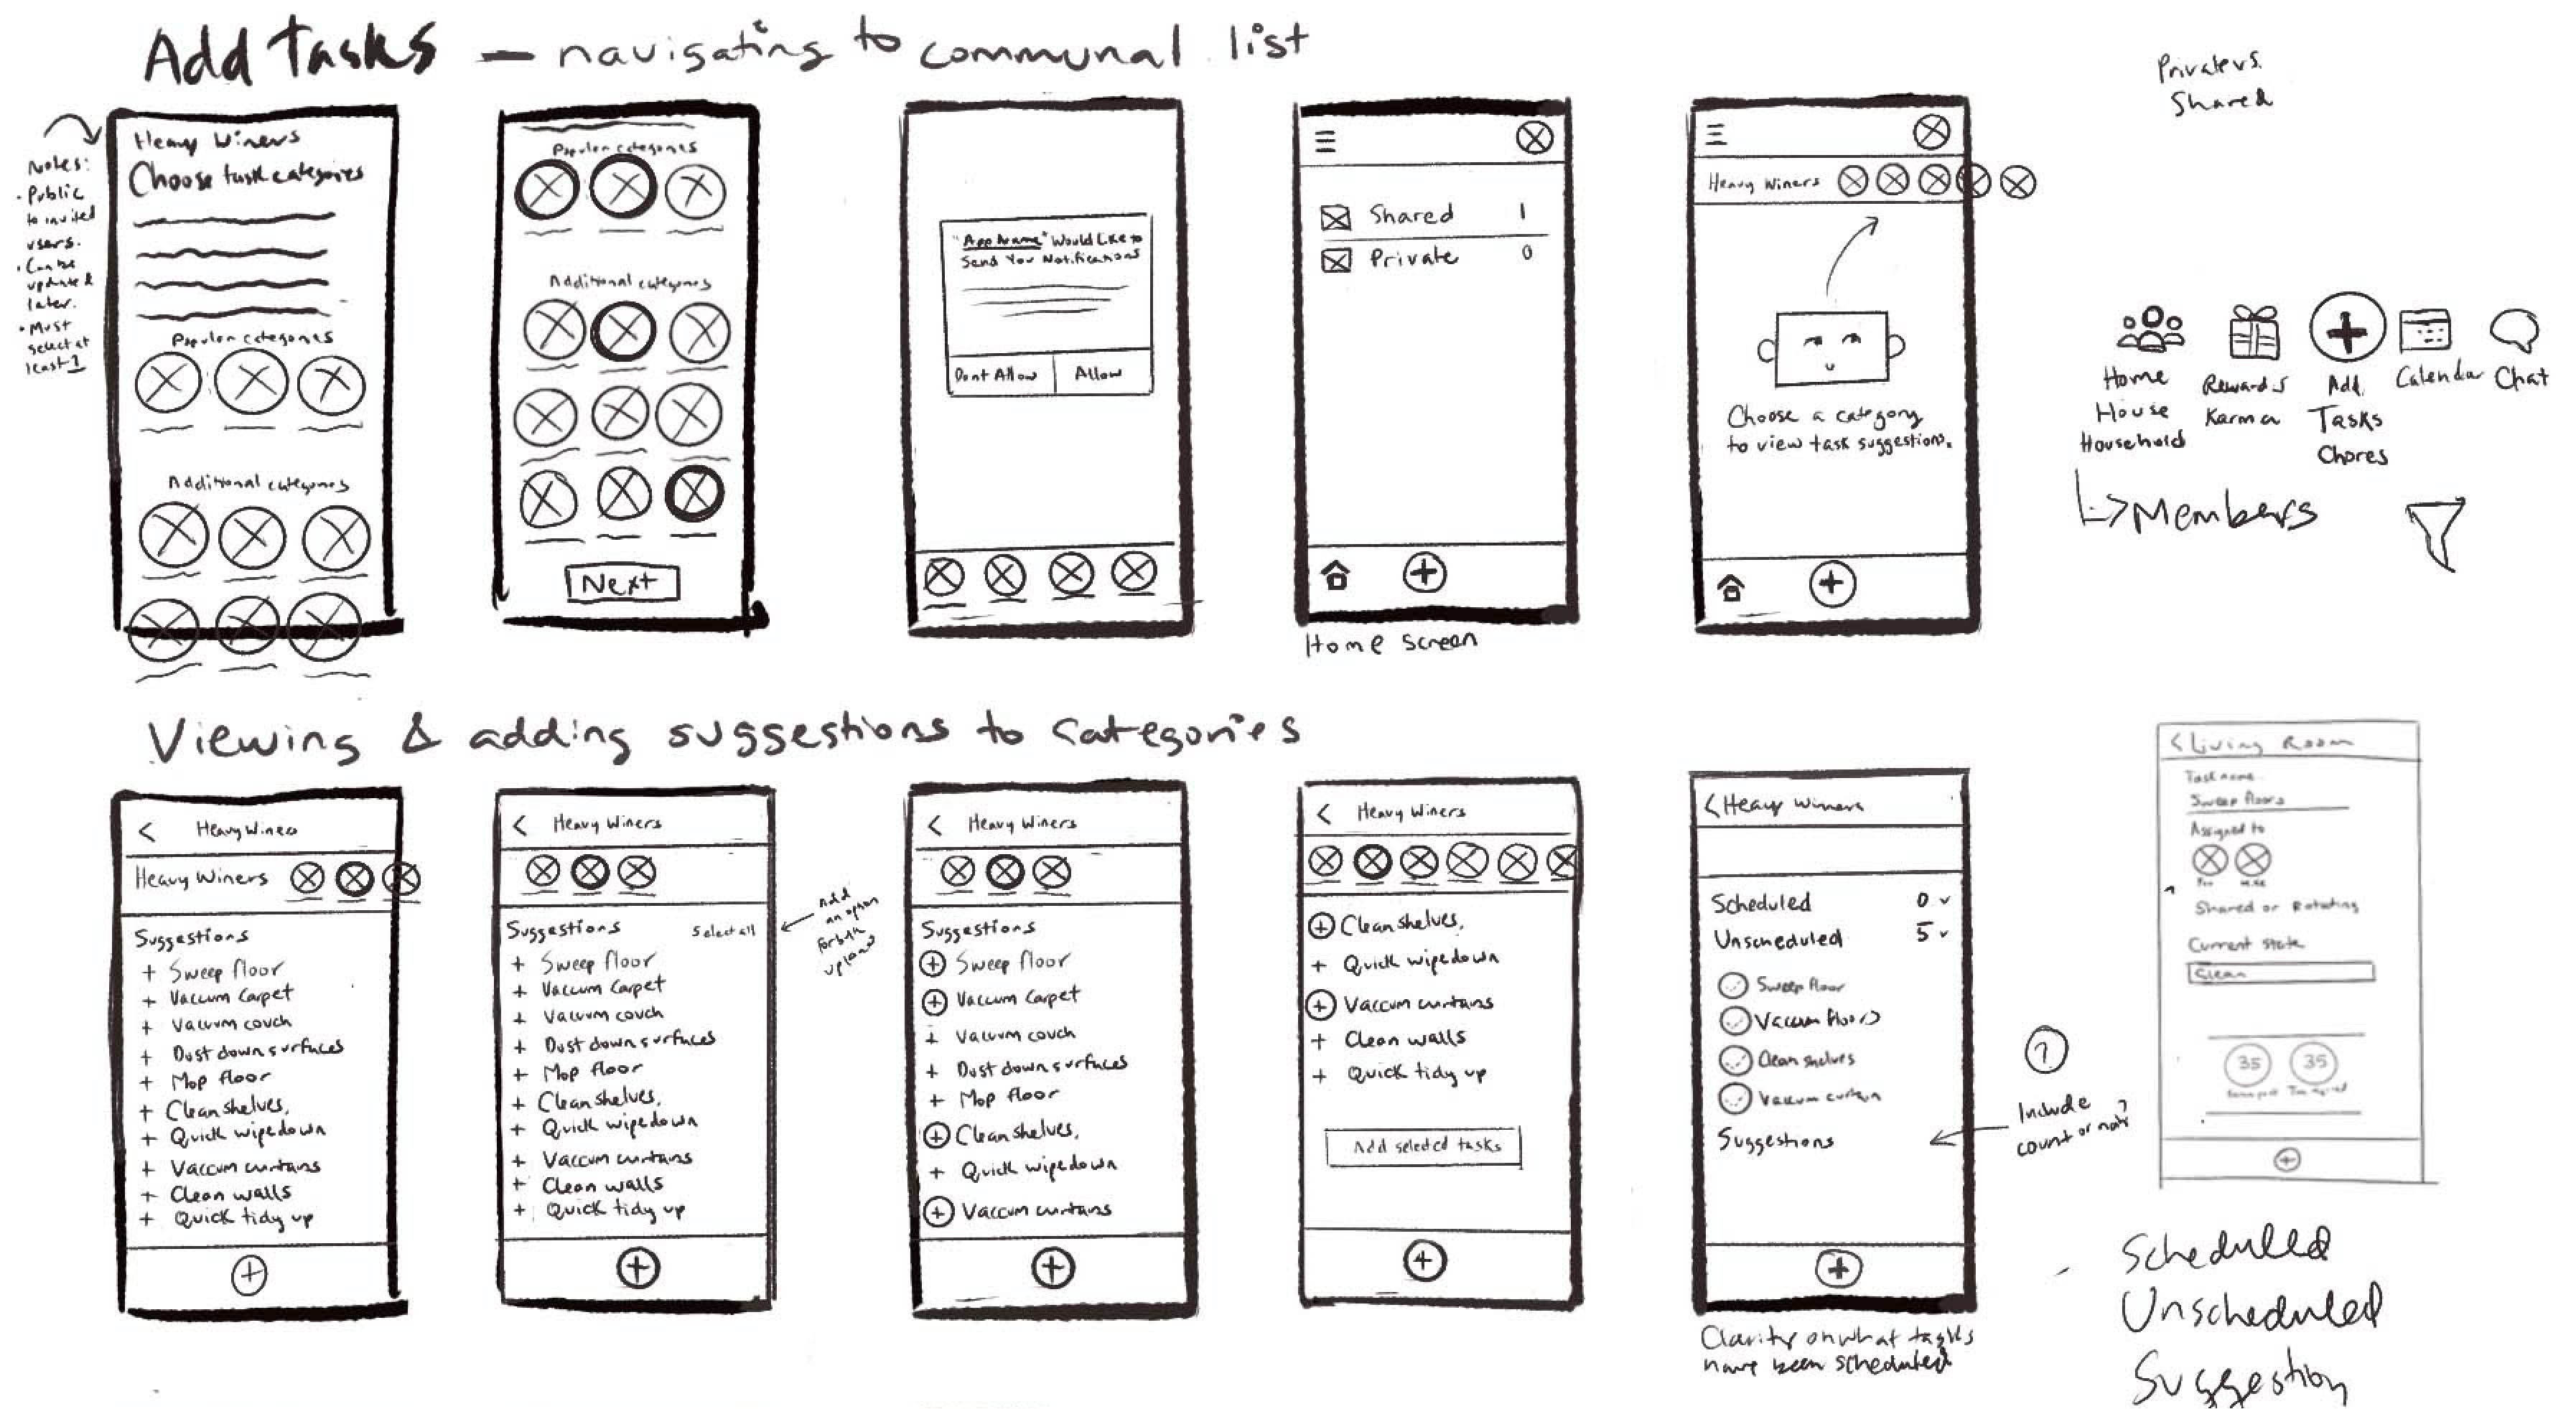 Add Tasks — navigating to communal list
Private vs.
Shared
Notes:
• Public
to invited
users.
• Can be
updated
later.
• Must
select at
least 1
Heavy Winers
Choose task categories
Popular categories
Additional categories
Popular categories
Additional categories
Next
"App Name" Would Like to
Send You Notifications
Dont Allow
Allow
Shared 1
Private 0
Home screen
Heavy Winers
Choose a category
to view task suggestions.
Home
House
Household
Rewards
Karma
Add
Tasks
Chores
Calendar
Chat
Members
Viewing & adding suggestions to categories
< Heavy Winers
Heavy Winers
Suggestions
+ Sweep floor
+ Vaccum Carpet
+ Vacuum couch
+ Dust down surfaces
+ Mop floor
+ Clean shelves,
+ Quick wipedown
+ Vaccum curtains
+ Clean walls
+ Quick tidy up
+
< Heavy Winers
Suggestions Select all
+ Sweep floor
+ Vaccum Carpet
+ Vacuum couch
+ Dust down surfaces
+ Mop floor
+ Clean shelves,
+ Quick wipedown
+ Vaccum curtains
+ Clean walls
+ Quick tidy up
+
Add
an option
for bulk
upload
< Heavy Winers
Suggestions
+ Sweep floor
+ Vaccum Carpet
+ Vacuum couch
+ Dust down surfaces
+ Mop floor
+ Clean shelves,
+ Quick wipedown
+ Vaccum curtains
+
< Heavy Winers
+ Clean shelves,
+ Quick wipedown
+ Vaccum curtains
+ Clean walls
+ Quick tidy up
Add selected tasks
+
< Heavy Winners
Scheduled 0
Unscheduled 5
Sweep floor
Vaccum floors
Clean shelves
Vaccum curtain
Suggestions
+
Clarity on what tasks
have been scheduled
?
Include
count or not?
< Living Room
Task name
Sweep floors
Assigned to
You
Shared or Rotating
Current state
Clean
35 35
+
Scheduled
Unscheduled
Suggestion